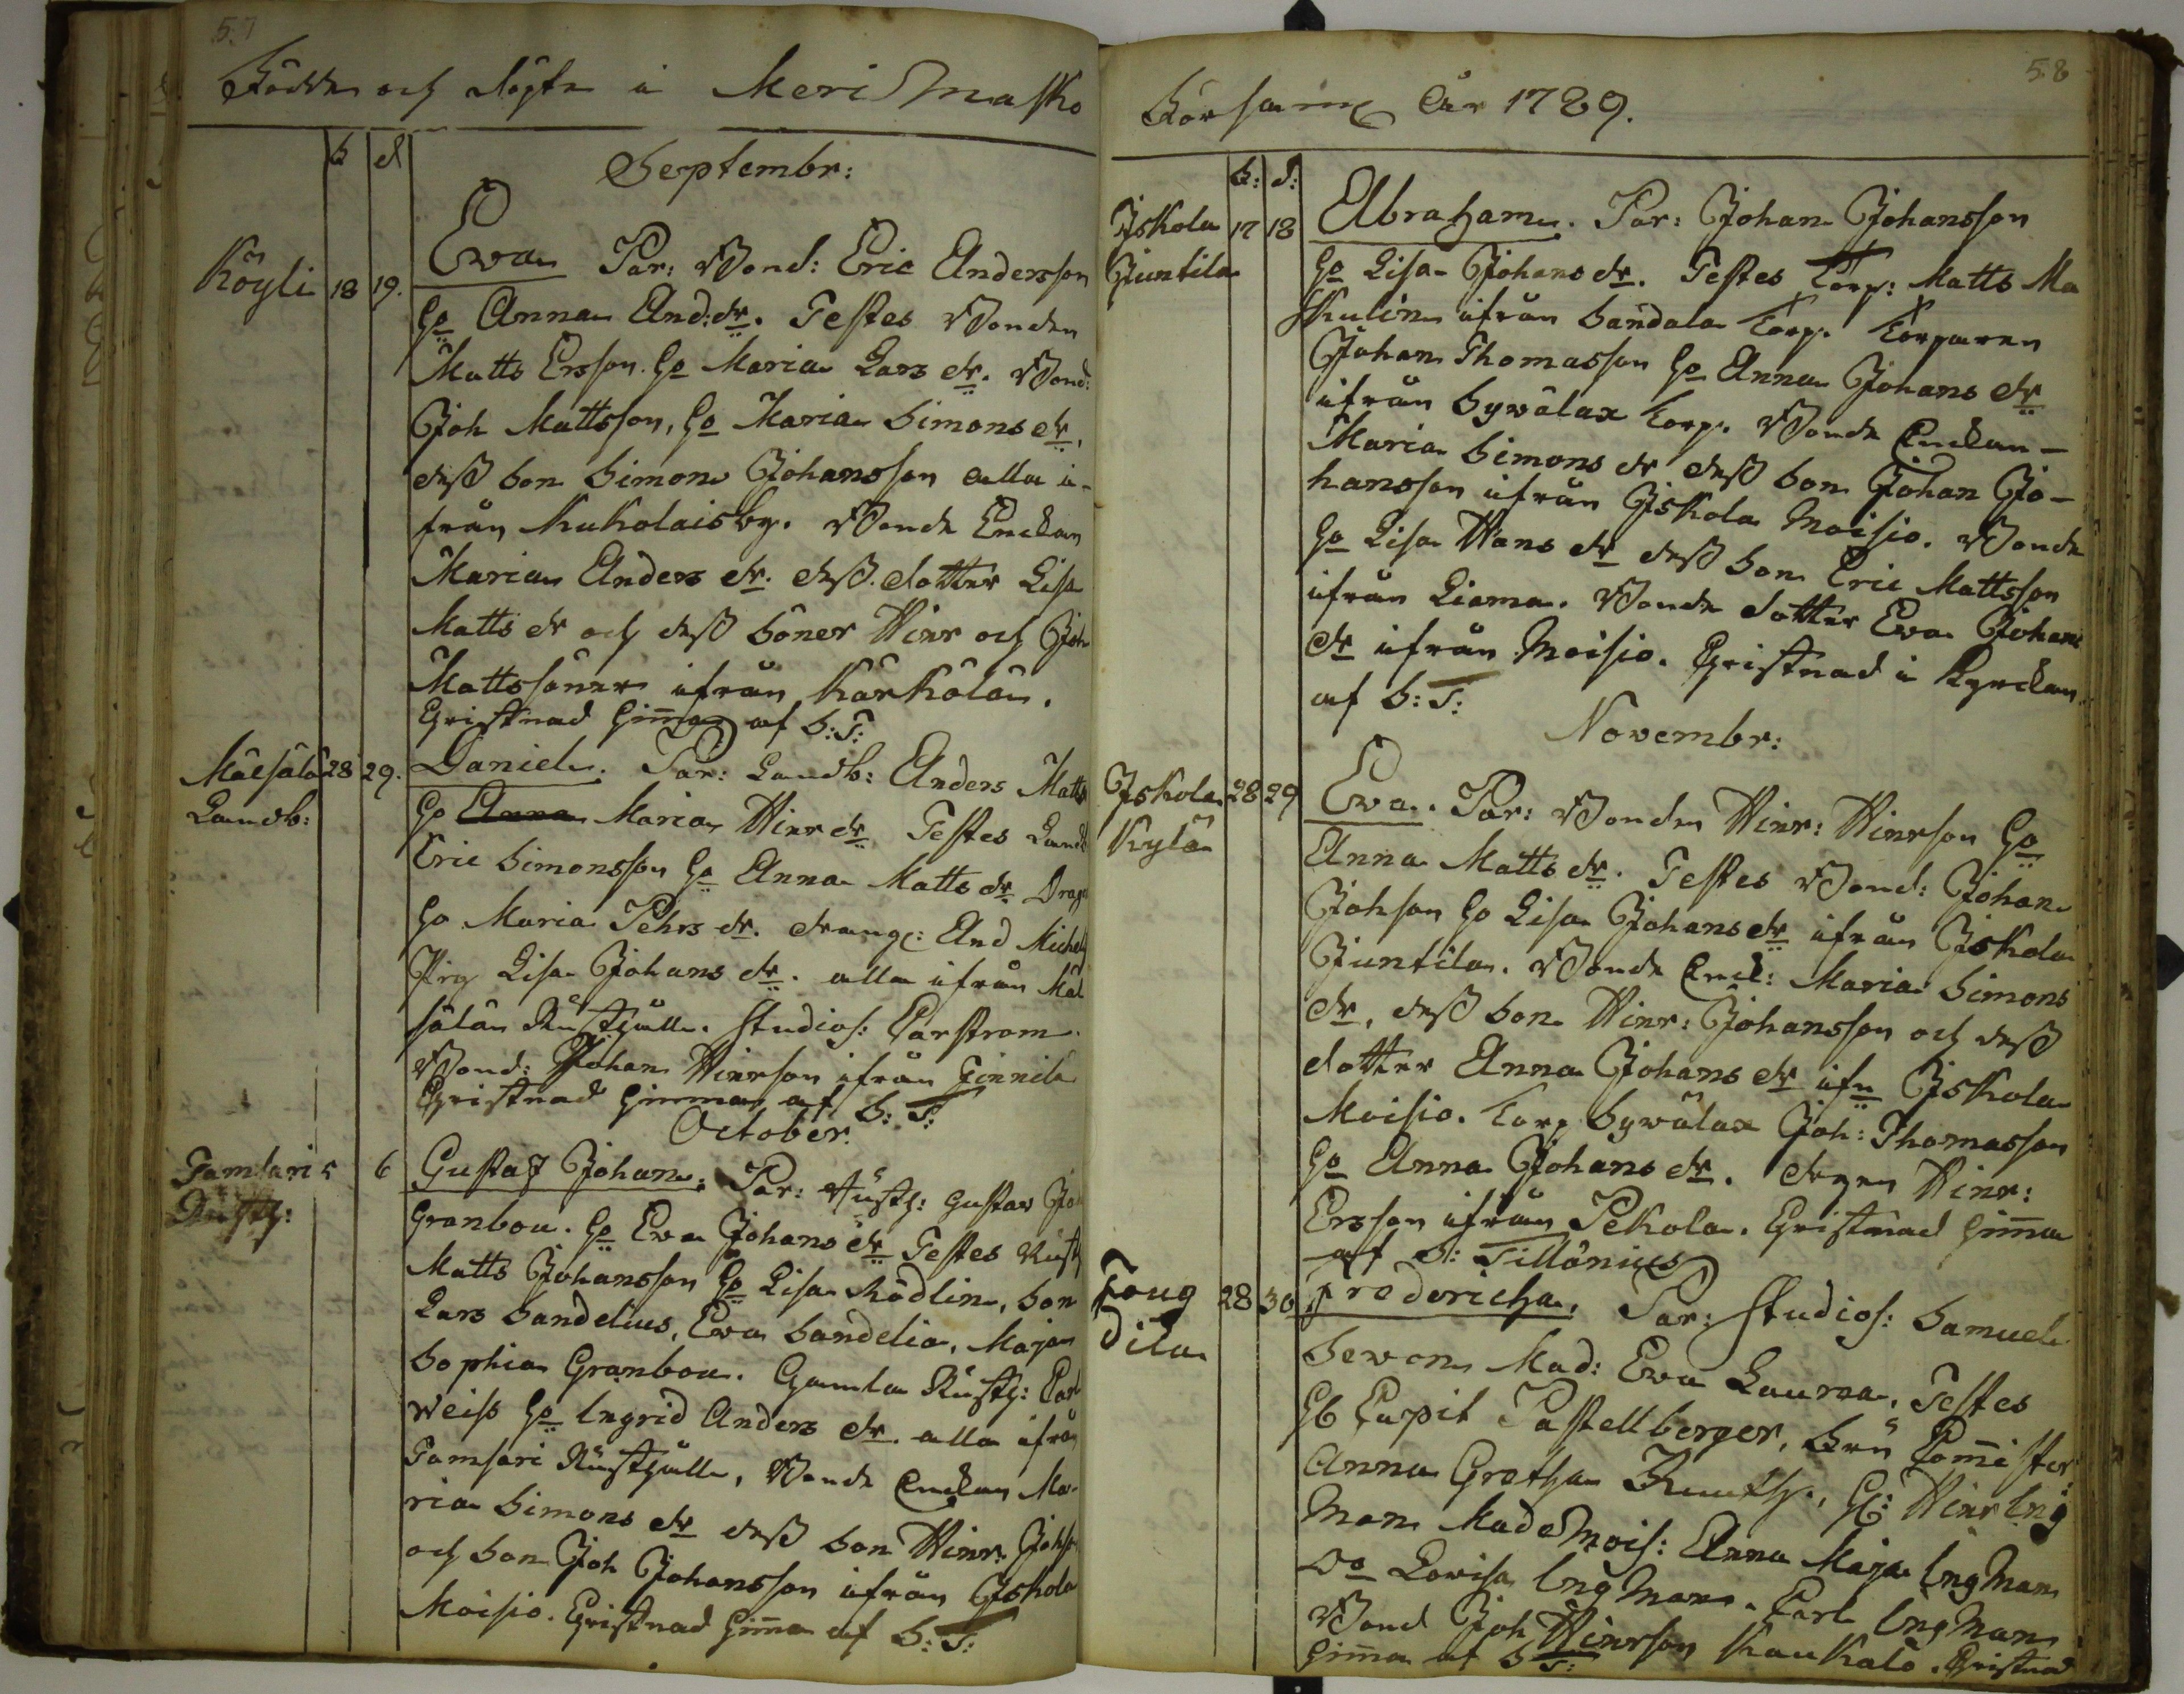 57
Födde och döpte i Meri Masko
b d
Septembr:
Köyli 18 19. Ewa Par: Bond: Eric Andersson
Ho Anna And:dr. Testes Bonden
Matts Ersson. Ho Maria Lars dr. Bond:
Joh Mattsson, Ho Maria Simons dr.
dess Son Simon Johansson alla i-
från Kukolaisby. Bonde Enckan
Maria Anders dr. dess dotter Lisa
Matts dr och dess Söner Hinr och Joh
Mattssöner ifrån Karkola.
Christnad hemma af S:T:
Mälsälä 28 29. Daniel. Par: Landb: Anders Matts
Landb: Ho Anna Maria Hinr dr Testes Landb
Eric Simonsson Ho Anna Matts dr Drag
Ho Maria Pehrs dr. dreng: And Michels
Pig Lisa Johans dr. alla ifrån Mäl
sälä Rusthåll. Studios: Parstrom
Bond: Johan Hinrson ifrån Finnilä
Christnad hemma af S: T:
October.
Tamsari 5 6 Gustaf Johan. Par: Rusth: Gustav Joh
Rusth: Granbou. Ho Ewa Johans dr Testes Rusth
Matts Johansson Ho Lisa Rödlin, Son
Lars Sandelius, Ewa Sandelia, Maja
Sophia Granbou. Gamla Rusth: Carl
Weiss Ho Ingrid Anders dr. alla ifrån
Tamsari Rusthåll, Bonde Enckan Ma-
ria Simons dr dess Son Hinr: Johss
och Son Joh Johansson ifrån Iskola
Moisio. Christnad hemma af S: T:
58
Församl. År 1789.
b: d:
Iskola 17 18 Abraham. Par: Johan Johansson
Juntila Ho Lisa Johans dr. Testes Torp: Matts Ma
skulin ifrån Sandala Torp. Torparen
Johan Thomasson Ho Anna Johans dr
ifrån Sywälax Torp. Bonde Enckan
Maria Simons dr dess Son Johan Jo-
hansson ifrån Iskola Moisio. Bonde
Ho Lisa Hans dr dess Son Eric Mattsson
ifrån Lioma. Bonde dotter Ewa Johans
dr ifrån Moisio. Christnad i Kyrckan
af S: T:
Novembr:
Iskola 28 29 Ewa. Par: Bonden Hinr: Hinrson Ho
Kylä Anna Matts dr. Testes Bond: Johan
Johson Ho Lisa Johans dr ifrån Iskola
Juntila. Bonde Enck: Maria Simons
dr, dess Son Hinr: Johansson och dess
dotter Anna Johans dr ifn Iskola
Moisio. Torp Sywälax Joh: Thomasson
Ho Anna Johans dr. dregen Hinr:
Ersson ifrån Pekola. Christnad hemma
af S: Tillönius
Foug 28 30 Fredericha. Par: Studios: Samuel
dila Sevon Mad: Ewa Lauraa. Testes
Hr Capit Pastellberger, Fru Commister
Anna Gretha Kreutz, Hr: Hinr Ing
man Mademois: Anna Maja Ingman
Do Lovisa Ingman. Carl Ingman
Bond Joh Hinrson Kaukalo. Christnad
hemma af S T: